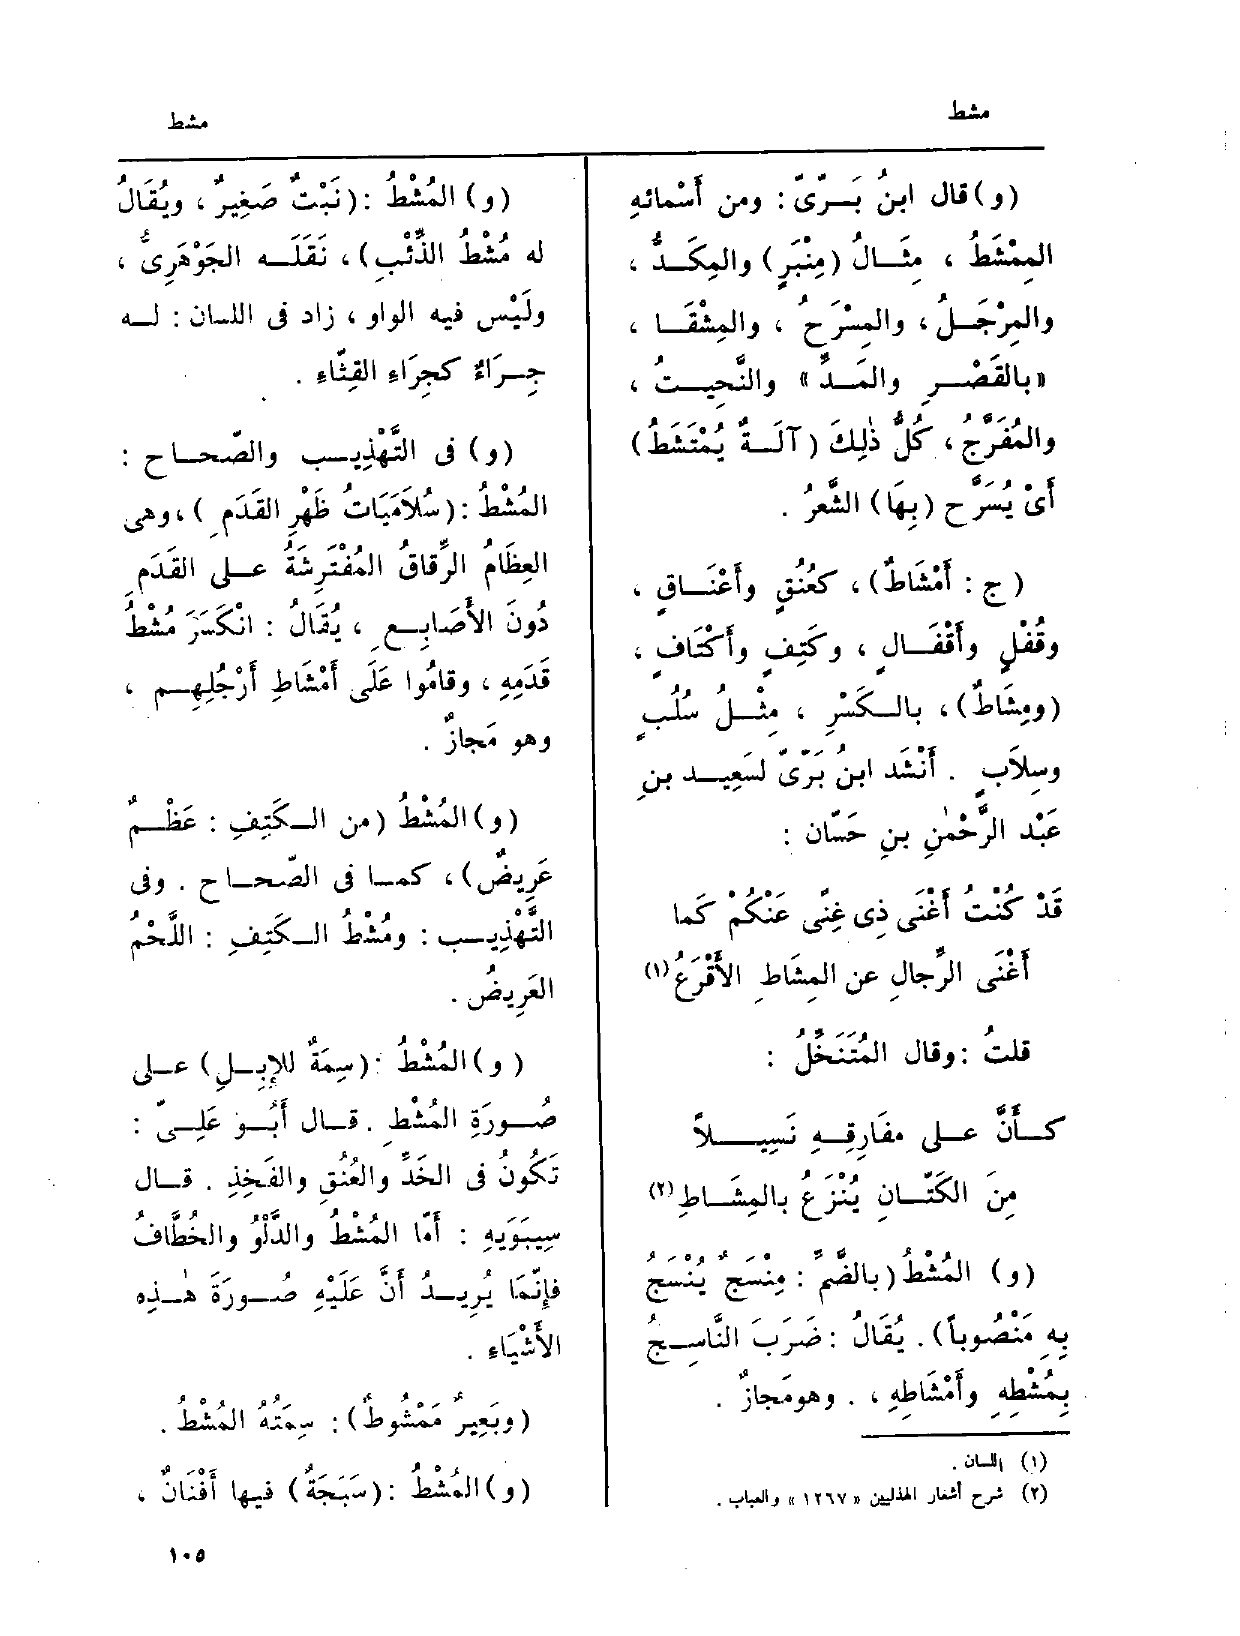 مشط
مشط
(و) قال ابنُ بَـرِّىّ : ومن أَسْمائه
المِمْشَطُ ، مِثــالُ (مِنْبَرٍ) والمِكَــدُّ ،
والمِرْجَــلُ ، والمِسْرَحُ ، والمِشْقَــا ،
«بالقَصْــرِ والمَــدّ» والنَّحِيــتُ ،
والمُفَرَّجُ ، كُلُّ ذٰلِكَ (آلَــةٌ يُمْتَشَطُ)
أَىْ يُسَرَّح (بِهَا) الشَّعرُ .
(ج : أَمْشَاطٌ) ، كعُنُقٍ وأَعْنَــاقٍ ،
وقُفْلٍ وأَقْفَــالٍ ، وكَتِفٍ وأَكْتَافٍ ،
(ومِشَاطٌ) ، بالــكَسْرِ ، مِثْــلُ سُلُبٍ
وسِلَابٍ . أَنْشَد ابنُ بَرِّىّ لسَعِيــد بنِ
عَبْد الرَّحْمٰنِ بنِ حَسّان :
قَدْ كُنْتُ أَغْنَى ذِى غِنًى عَنْكُمْ كَما
أَغْنَى الرِّجالِ عن المِشَاطِ الأَقْرَعُ (١)
قلتُ : وقال المُتَنَخِّلُ :
كــأَنَّ عــلى مفَارِقِــهِ نَسِيــــلاً
مِنَ الكَتّــانِ يُنْزَعُ بالمِشَــاطِ (٢)
(و) المُشْطُ (بالضَّمِّ : مِنْسَجٌ يُنْسَجُ
بِهِ مَنْصُوباً) . يُقَالُ : ضَرَبَ النَّاسِــجُ
بِمُشْطِهِ وأَمْشَاطِهِ ، . وهو مَجازٌ .
(١) اللسان .
(٢) شرح أشعار الهذليين «١٢٦٧» والعباب .
(و) المُشْطُ : (نَبْتٌ صَغِيرٌ ، ويُقَالُ
له مُشْطُ الذِّئْبِ) ، نَقَلَــه الجَوْهَرِىُّ ،
ولَيْس فيه الواو ، زاد فى اللسان : لــه
جِــرَاءٌ كجِرَاءِ القِثّاء .
(و) فى التَّهْذِيــب والصّحــاح :
المُشْطُ : (سُلَامَيَاتُ ظَهْرِ القَدَمِ) ، وهى
العِظَامُ الرِّقاقُ المُفْتَرِشَةُ عــلى القَدَمِ
دُونَ الأَصَابِــعِ ، يُقَالُ : انْكَسَرَ مُشْطُ
قَدَمِهِ ، وقامُوا عَلَى أَمْشَاطِ أَرْجُلِهِــم ،
وهو مَجازٌ .
(و) المُشْطُ (من الــكَتِفِ : عَظْــمٌ
عَرِيضٌ) ، كمــا فى الصّحــاح . وفى
التَّهْذِيــب : ومُشْطُ الــكَتِفِ : اللَّحْمُ
العَرِيضُ .
(و) المُشْطُ : (سِمَةٌ للإِبِــلِ) عــلى
صُــورَةِ المُشْطِ . قــال أَبُــو عَلِــىّ :
تَكُونُ فى الخَدِّ والعُنُقِ والفَخِذِ . قــال
سِيبَوَيهِ : أَمّا المُشْطُ والدَّلْوُ والخُطَّافُ
فإِنّمَا يُرِيــدُ أَنَّ عَلَيْهِ صُــورَةَ هٰــذِه
الأَشْيَاءِ .
(وبَعِيرٌ مَمْشُوطٌ) : سِمَتُهُ المُشْطُ .
(و) المُشْطُ : (سَبَجَةٌ) فيها أَفْنَانٌ ،
١٠٥